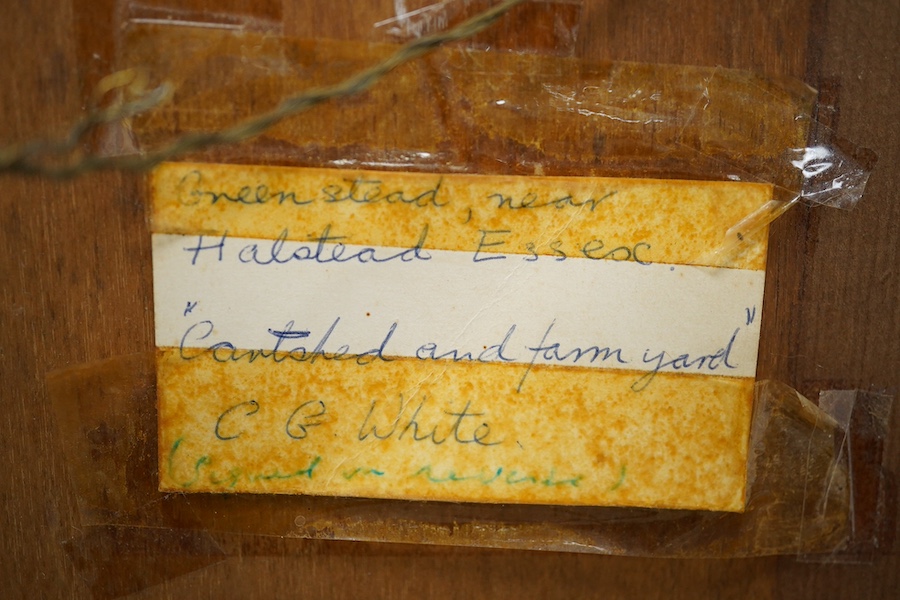 Greenstead, near
Halstead Essex.
"Cartshed and farm yard"
C G. White.
(Signed on reverse)